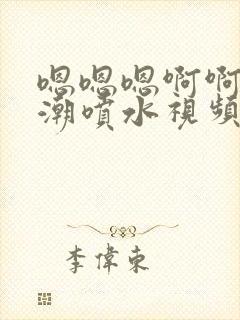 嗯嗯嗯啊啊
潮噴水視頻
李偉東